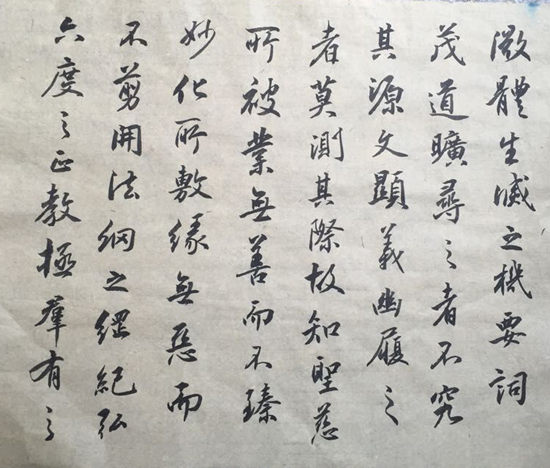 微體生滅之機要詞
茂道曠尋之者不究
其源文顯義幽履之
者莫測其際故知聖慈
所被業無善而不臻
妙化所敷緣無惡而
不剪開法網之綱紀弘
六度之正教拯羣有之